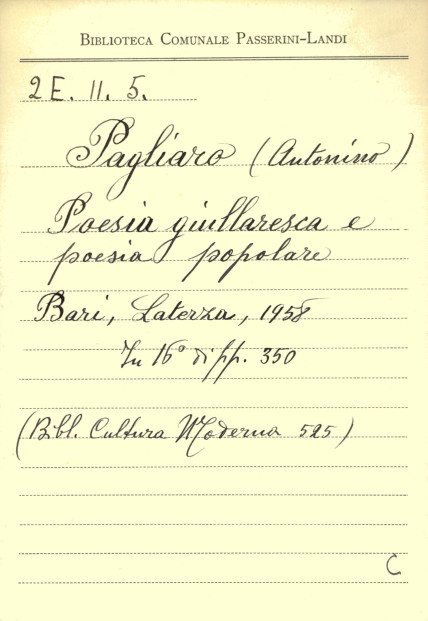 BIBLIOTECA COMUNALE PASSERINI-LANDI
2 E. II. 5.
Pagliaro (Antonino)
Poesia giullaresca e
poesia popolare
Bari, Laterza, 1958
In 16° di pp. 350
(Bibl. Cultura Moderna 525)
C